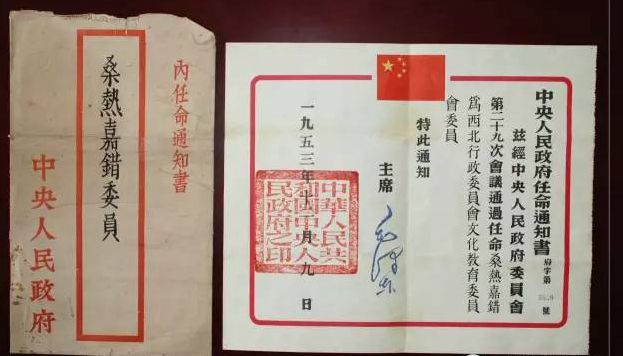 內任命通知書
桑熱嘉錯委員
中央人民政府
中央人民政府任命通知書
府字第
號
茲經中央人民政府委員會
第二十九次會議通過任命桑熱嘉錯
爲西北行政委員會文化教育委員
會委員
特此通知
主席
毛澤東
一九五三年十二月九日
中華人民共
和國中央人
民政府之印